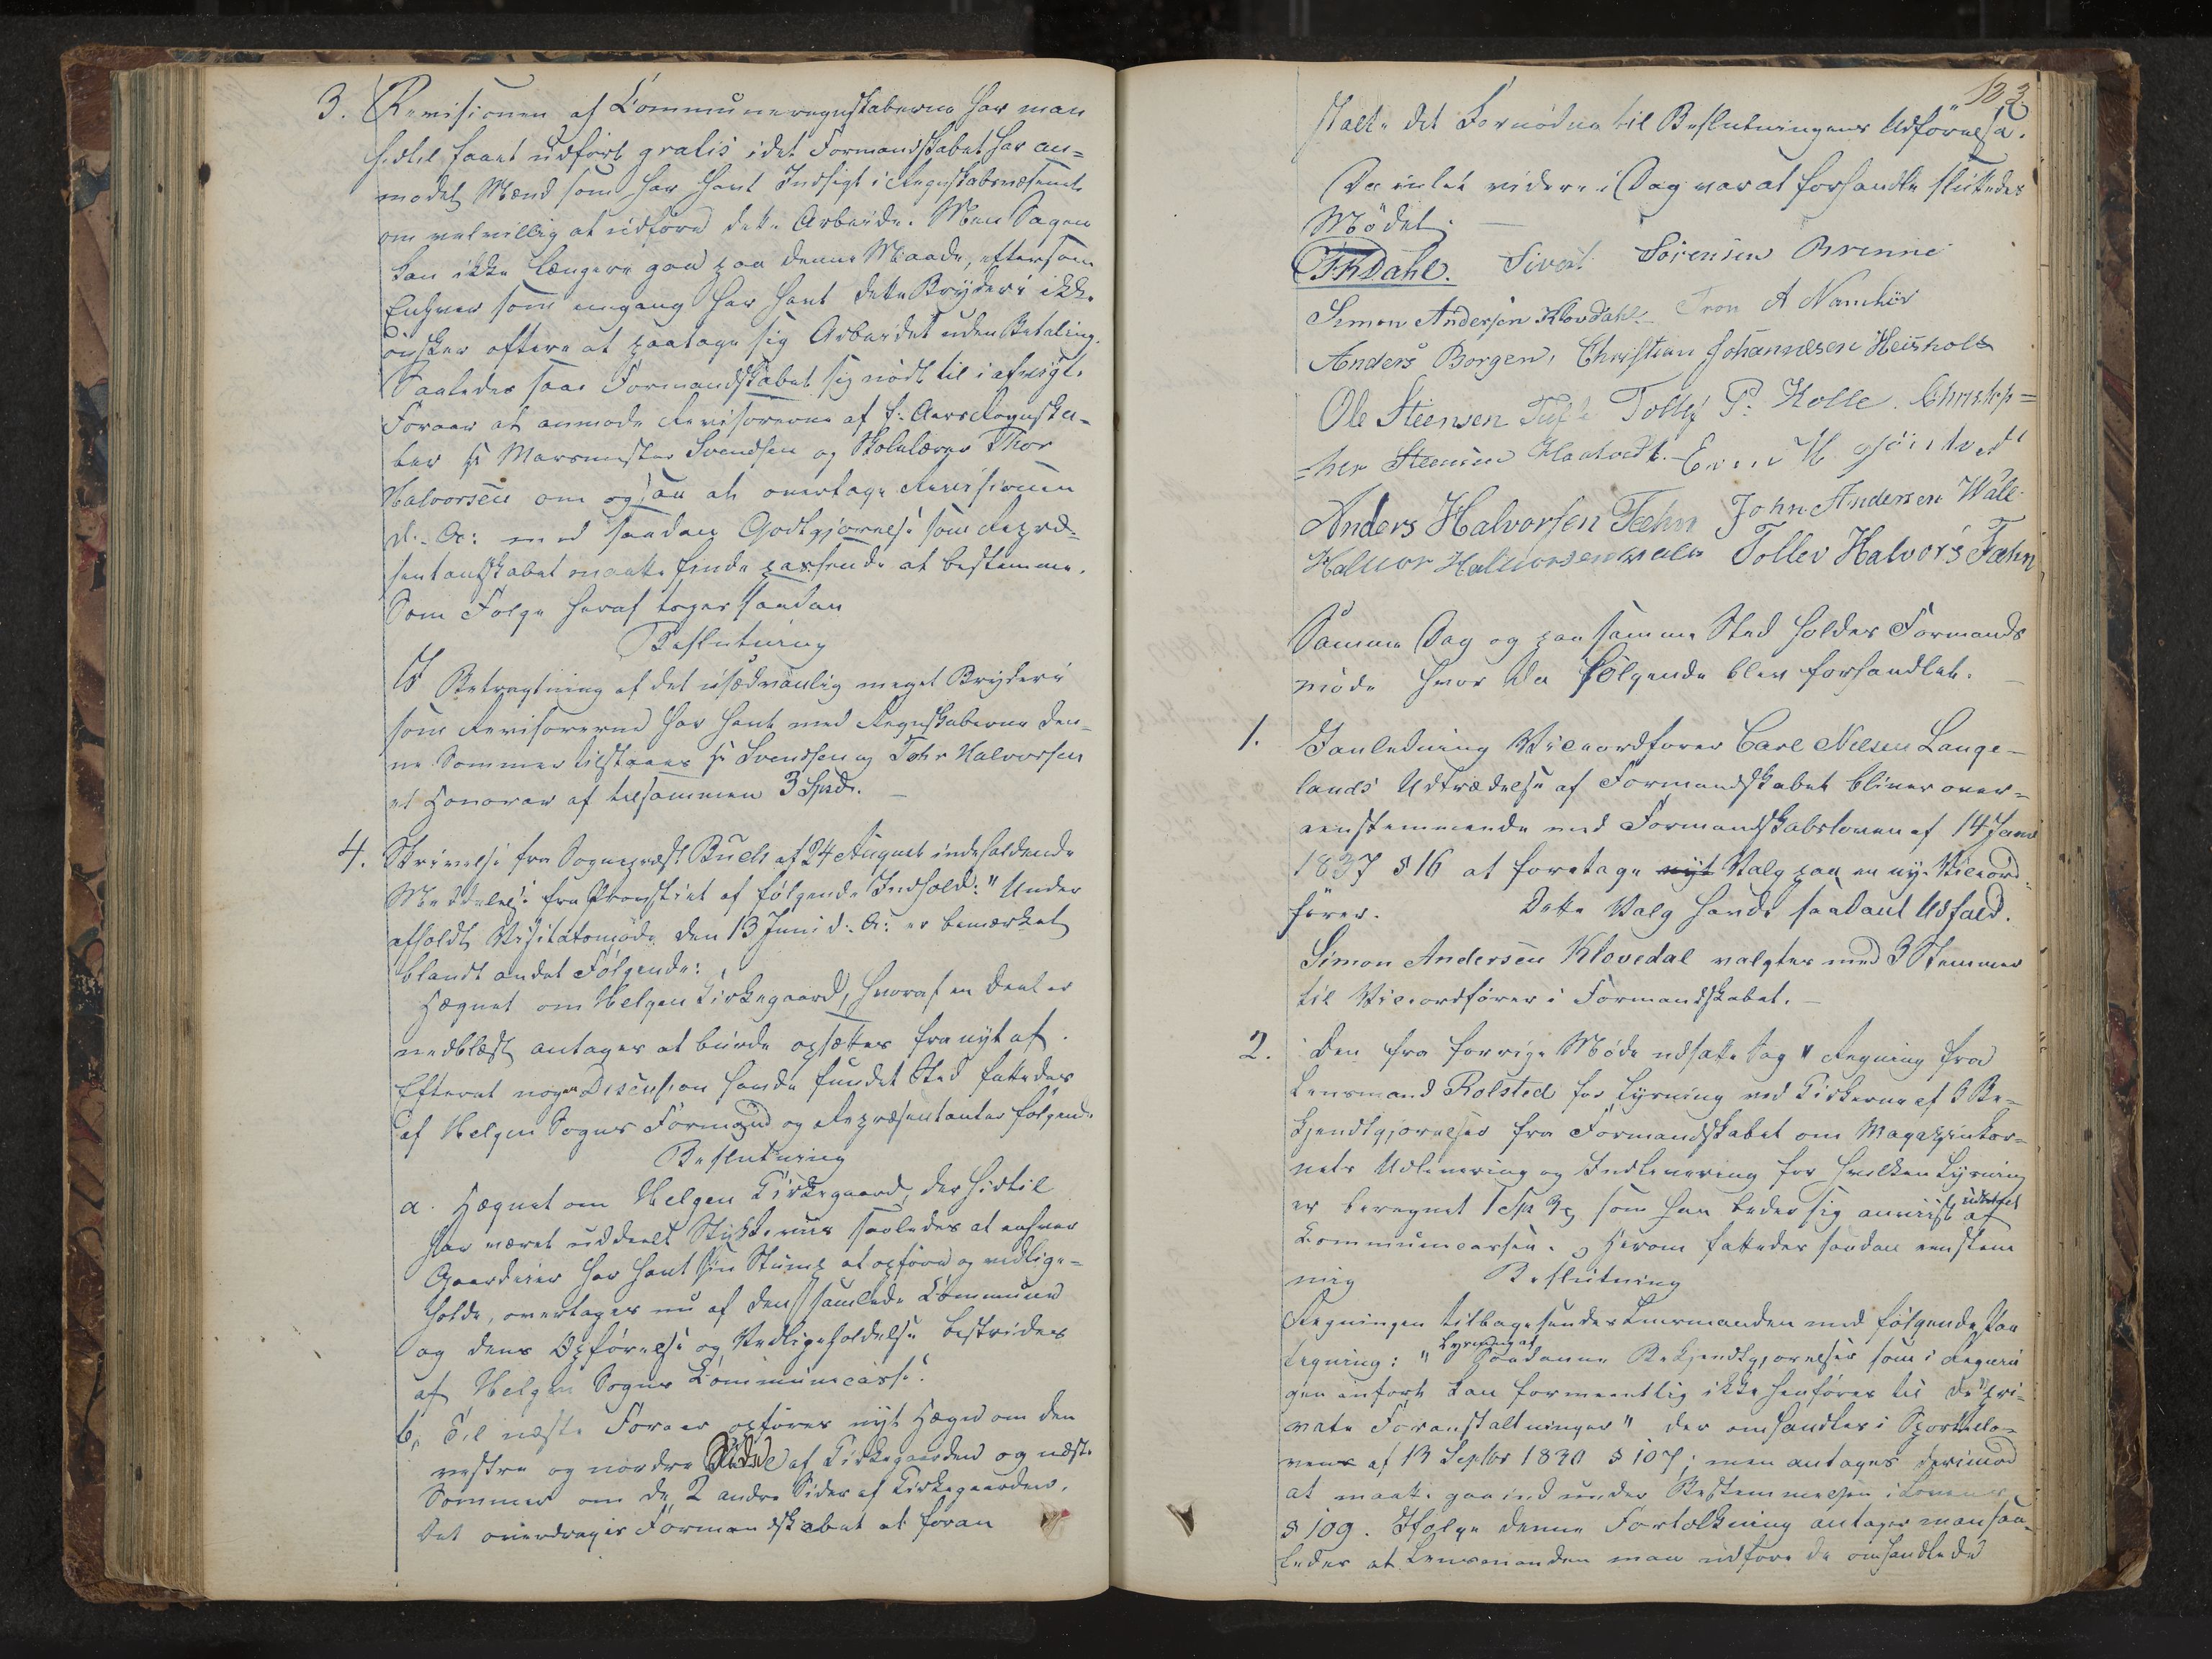 3. Revisionen af Communeregnskaberne har man
hidtil faaet udført gratis idet Formandskabet har an=
modet Mænd som har havt Indsigt i Regnskabsvæsenet
om velvillig at udføre dette Arbeide. Men Sagen
kan ikke længere gaa paa denne Maade, eftersom
Enhver som eengang har havt dette Bryderi ikke
ønsker oftere at paatage sig Arbeidet uden Betaling.
Saaledes saae Formandskabet sig nødt til i afvigte
Foraar at anmode Revisorerne af f. Aars Regnska-
ber Hr Marcmester Svendsen og Skolelærer Thor
Halvorsen om ogsaa at overtage Revisionen
d. A: med saadan Godtgjørelse som Repræ=
sentantskabet maatte finde passende at bestemme.
Som Følge heraf toges saadan
Beslutning
I Betragtning af det usædvanlig meget Bryderi
som Revisorerne har havt med Regnskaberne den=
ne Sommer tilstaaes Hr Svendsen og Tohr Halvorsen
et Honorar af tilsammen 3 Spd.
4. Skrivelse fra Sognepræst Buch af 24 August indeholdende
Meddelelse fra Provstiet af følgende Indhold: "Under
afholdt Visitatsmøde den 13 Juni d: A: er bemærket
blandt andet Følgende:
Hegnet om Helgen Kirkegaard, hvoraf en Deel er
nedblæst antages at burde opsættes fra nyt af.
Efterat nogen Discusion havde fundet Sted fattedes
af Helgen Sogns Formænd og Repræsentanter følgende
Beslutning
a. Hegnet om Helgen Kirkegaard, der hidtil
har været uddeelt Stykkeviis saaledes at enhver
Gaardeier har havt sin Stump at opføre og vedlige=
holde, overtages nu af den samlede Commune
og dens Opførelse og Vedligeholdelse bestrides
af Helgen Sogns Communecasse.
b, Til næste Foraar opføres nyt Hegn om den
vestre og nordre Side af Kirkegaarden og næste
Sommer om de 2 andre Sider af Kirkegaarden.
Det overdrages Formandskabet at foran
123
stalte det Fornødne til Beslutningens Udførelse.
Da intet videre i Dag var at forhandle sluttedes
Mødet.
THDahl. Sivert Sørensen Brenne
Simon Andersen Klovdahl. Tron A Namløs
Anders Borgen, Christian Johannesen Heisholt
Ole Steensen Tufte Tollef P. Holte. Christop=
=her Steensen Haatvedt.
Anders Halvorsen Fæhn John Andersen Wale
Halvor Halvorsen Tollev Halvors Fæhn
Samme Dag og paa samme Sted holdes Formands
møde hvor da følgende blev forhandlet.
1. I Anledning Viceordfører Carl Nilsen Lange-
lands Udtrædelse af Formandskabet bliver over=
eensstemmende med Formandskabsloven af 14 Janr
1837 § 16 at foretage nyt Valg paa en ny Viceord=
fører. Dette Valg havde saadant Udfald.
Simon Andersen Klovedal valgtes med 3 Stemmer
til Viceordfører i Formandskabet.
2. Den fra forrige Møde udsatte Sag "Regning fra
Lensmand Rolsted for Lysning ved Kirkerne af 6 Be=
kjendtgjørelser fra Formandskabet om Magazinkor=
nets Udlevering og Indlevering for hvilken Lysning
er beregnet som han beder sig anviist udbetalt af
Communecassen. Herom fattedes saadan eenstem
mig Beslutning
Regningen tilbagesendes Lensmanden med følgende Paa
tegning: "Lysning af saadanne Bekjendtgjørelser som i Regnin
gen anført kan formeentlig ikke henføres til de "pri=
vate Foranstaltninger" der omhandles i Sportello=
vens af 13 Septbr 1830 § 107; men antages derimod
at maatte gaa ind under Bestemmelsen i Lovens
§ 109. Ifølge denne Fortolkning antager man saa=
ledes at Lensmanden maa udføre de omhandlede